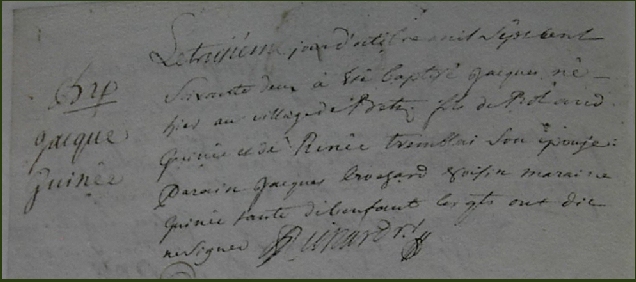 Le troisieme jour d'octobre mil sept cent
Bap
soixante deux a été baptisé jacques né
hier au village de fils de
jacque
guinée et de Renée tremblai son épouse :
guinée
Parain jacques voisin maraine
guinée tante dudi enfant lesqls ont dit
ne signer